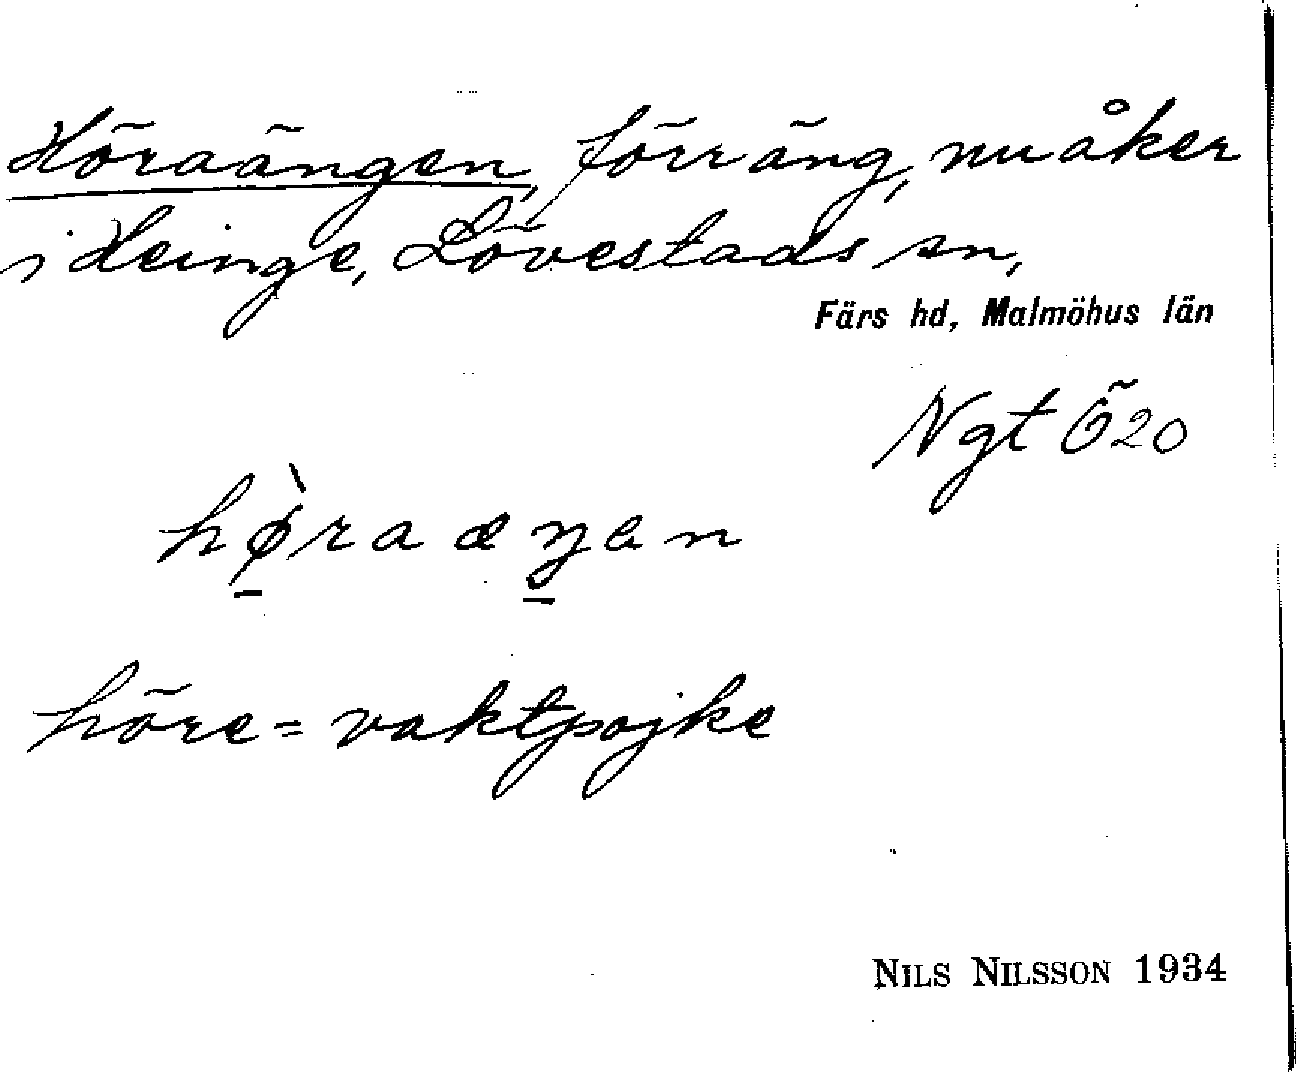 Höraängen, förr äng, nu åker
i Heinge, Lövestads sn,
Färs hd, Malmöhus län
Ngt Ö 20
hø̀raæŋen
höre = vaktpojke
NILS NILSSON 1934